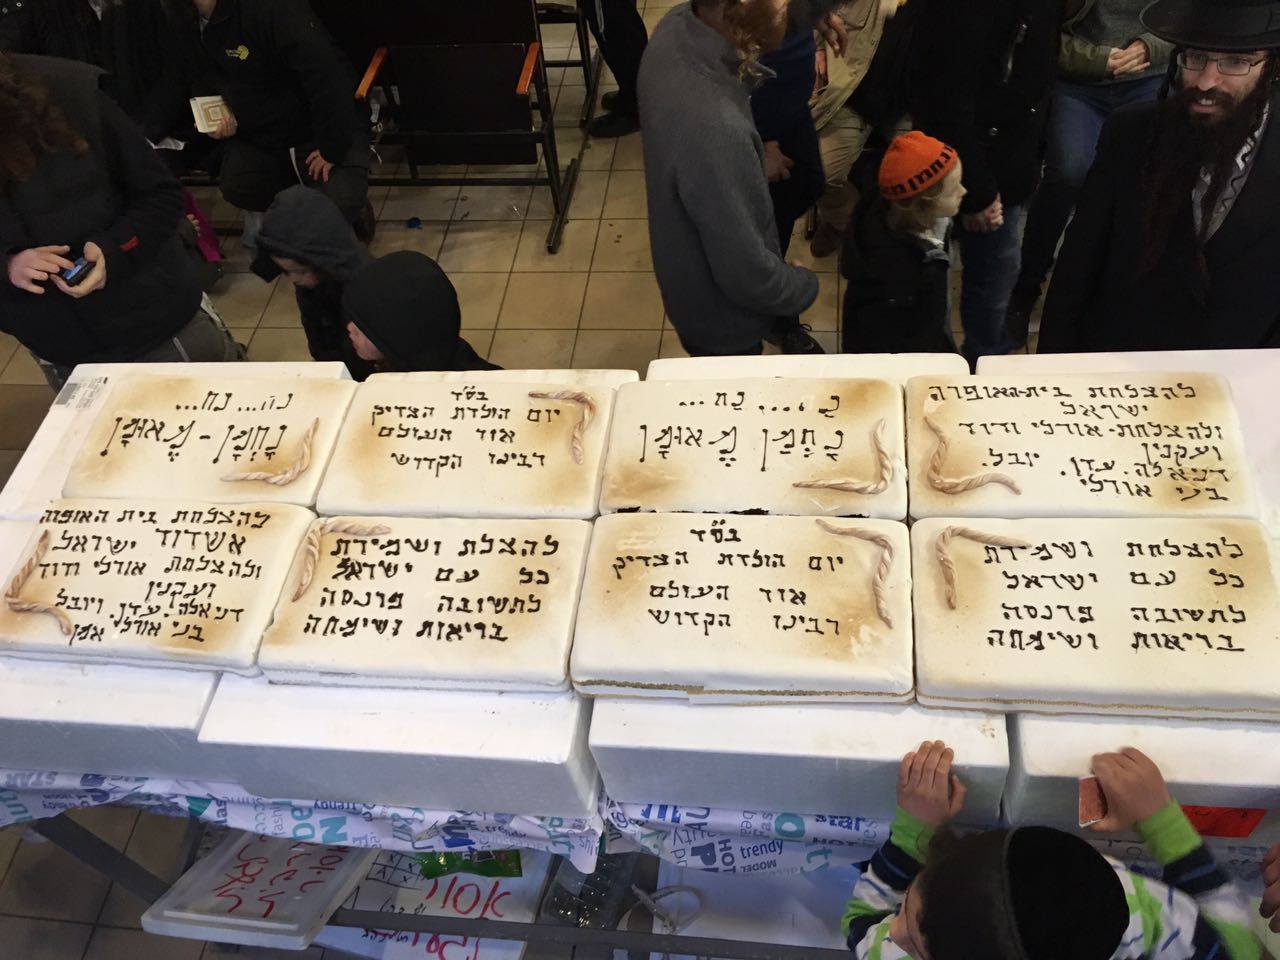 נ... נח...
נחמן - מאומן
בס"ד
יום הולדת הצדיק
אוד העולם
רבינו הקדוש
נ.... נח...
נחמן מאומן
להצלחת בית-האופרה
ישראל
ולהצלחת-אורלי ודוד
ועקנין
דניאלה. עדן. יובל.
בני אורלי
להצלחת בית האופה
אשדוד ישראל
ולהצלחת אורלי ודוד
ועקנין
דניאלה. עדן. ויובל
בני אורלי אמן
להצלת ושמירת
כל עם ישראל
לתשובה פרנסה
בריאות ושימחה
בס"ד
יום הולדת הצדיק
אוד העולם
רבינו הקדוש
להצלחת ושמירת
כל עם ישראל
לתשובה פרנסה
בריאות ושימחה
trendy
HOT
MODEL
trendy